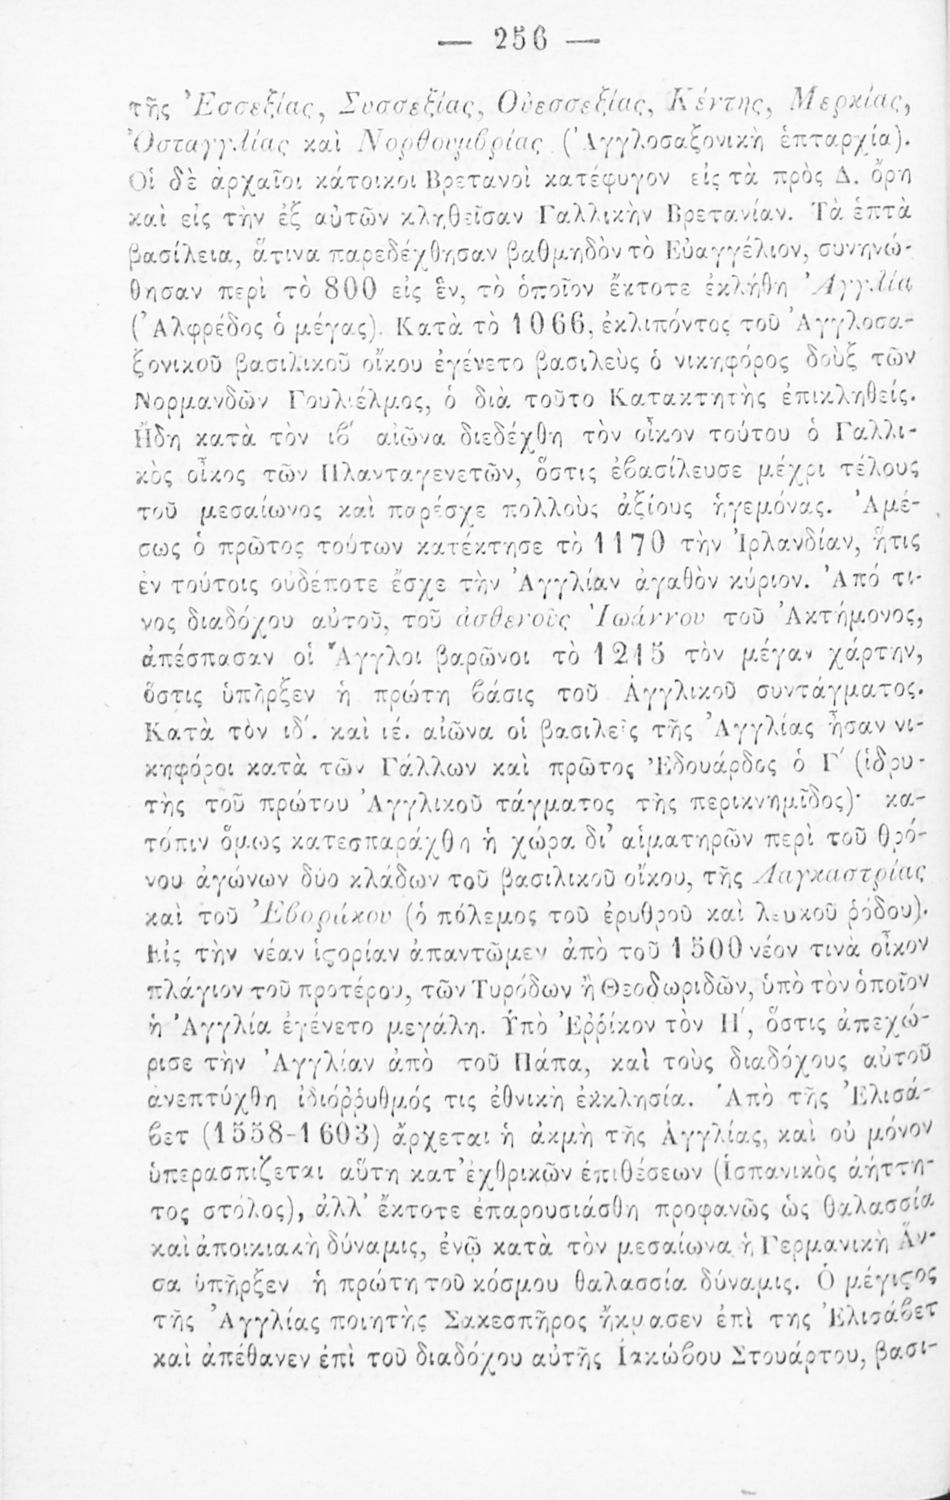 — 256 —
τῆς Ἐσσεξίας, Συσσεξίας, Οὐεσσεξίας, Κέντης, Μερκίας,
Ὀσταγγλίας καὶ Νορθουμβρίας (Ἀγγλοσαξονικὴ ἑπταρχία).
Οἱ δὲ ἀρχαῖοι κάτοικοι Βρετανοὶ κατέφυγον εἰς τὰ πρὸς Δ. ὄρη
καὶ εἰς τὴν ἐξ αὐτῶν κληθεῖσαν Γαλλικὴν Βρετανίαν. Τὰ ἑπτὰ
βασίλεια, ἅτινα παρεδέχθησαν βαθμηδὸν τὸ Εὐαγγέλιον, συνηνώ-
θησαν περὶ τὸ 800 εἰς ἓν, τὸ ὁποῖον ἔκτοτε ἐκλήθη Ἀγγλία
(Ἀλφρέδος ὁ μέγας). Κατὰ τὸ 1066, ἐκλιπόντος τοῦ Ἀγγλοσα-
ξονικοῦ βασιλικοῦ οἴκου ἐγένετο βασιλεὺς ὁ νικηφόρος δοὺξ τῶν
Νορμανδῶν Γουλιέλμος, ὁ διὰ τοῦτο Κατακτητὴς ἐπικληθείς.
Ἤδη κατὰ τὸν ιβ′ αἰῶνα διεδέχθη τὸν οἶκον τούτου ὁ Γαλλι-
κὸς οἶκος τῶν Πλανταγενετῶν, ὅστις ἐβασίλευσε μέχρι τέλους
τοῦ μεσαίωνος καὶ παρέσχε πολλοὺς ἀξίους ἡγεμόνας. Ἀμέ-
σως ὁ πρῶτος τούτων κατέκτησε τὸ 1170 τὴν Ἰρλανδίαν, ἥτις
ἐν τούτοις οὐδέποτε ἔσχε τὴν Ἀγγλίαν ἀγαθὸν κύριον. Ἀπό τι-
νος διαδόχου αὐτοῦ, τοῦ ἀσθενοῦς Ἰωάννου τοῦ Ἀκτήμονος,
ἀπέσπασαν οἱ Ἄγγλοι βαρῶνοι τὸ 1215 τὸν μέγαν χάρτην,
ὅστις ὑπῆρξεν ἡ πρώτη βάσις τοῦ Ἀγγλικοῦ συντάγματος.
Κατὰ τὸν ιδ′. καὶ ιέ. αἰῶνα οἱ βασιλεῖς τῆς Ἀγγλίας ἦσαν νι-
κηφόροι κατὰ τῶν Γάλλων καὶ πρῶτος Ἐδουάρδος ὁ Γ′ (ἱδρυ-
τὴς τοῦ πρώτου Ἀγγλικοῦ τάγματος τῆς περικνημῖδος)· κα-
τόπιν ὅμως κατεσπαράχθη ἡ χώρα δι᾽ αἱματηρῶν περὶ τοῦ θρό-
νου ἀγώνων δύο κλάδων τοῦ βασιλικοῦ οἴκου, τῆς Λαγκαστρίας
καὶ τοῦ Ἐβοράκου (ὁ πόλεμος τοῦ ἐρυθροῦ καὶ λευκοῦ ῥόδου).
Εἰς τὴν νέαν ἱϛορίαν ἀπαντῶμεν ἀπὸ τοῦ 1500 νέον τινὰ οἶκον
πλάγιον τοῦ προτέρου, τῶν Τυρόδων ἢ Θεοδωριδῶν, ὑπὸ τὸν ὁποῖον
ἡ Ἀγγλία ἐγένετο μεγάλη. Ὑπὸ Ἐῤῥίκον τὸν Η′, ὅστις ἀπεχώ-
ρισε τὴν Ἀγγλίαν ἀπὸ τοῦ Πάπα, καὶ τοὺς διαδόχους αὐτοῦ
ἀνεπτύχθη ἰδιόῤῥυθμός τις ἐθνικὴ ἐκκλησία. Ἀπὸ τῆς Ἐλισά-
βετ (1558-1603) ἄρχεται ἡ ἀκμὴ τῆς Ἀγγλίας, καὶ οὐ μόνον
ὑπερασπίζεται αὕτη κατ᾽ ἐχθρικῶν ἐπιθέσεων (Ἱσπανικὸς ἀήττη-
τος στόλος), ἀλλ᾽ ἔκτοτε ἐπαρουσιάσθη προφανῶς ὡς θαλασσία
καὶ ἀποικιακὴ δύναμις, ἐνῷ κατὰ τὸν μεσαίωνα ἡ Γερμανικὴ Ἄν-
σα ὑπῆρξεν ἡ πρώτη τοῦ κόσμου θαλασσία δύναμις. Ὁ μέγιϛος
τῆς Ἀγγλίας ποιητὴς Σακεσπῆρος ἤκμασεν ἐπὶ της Ἐλισάβετ
καὶ ἀπέθανεν ἐπὶ τοῦ διαδόχου αὐτῆς Ἰακώβου Στουάρτου, βασι-